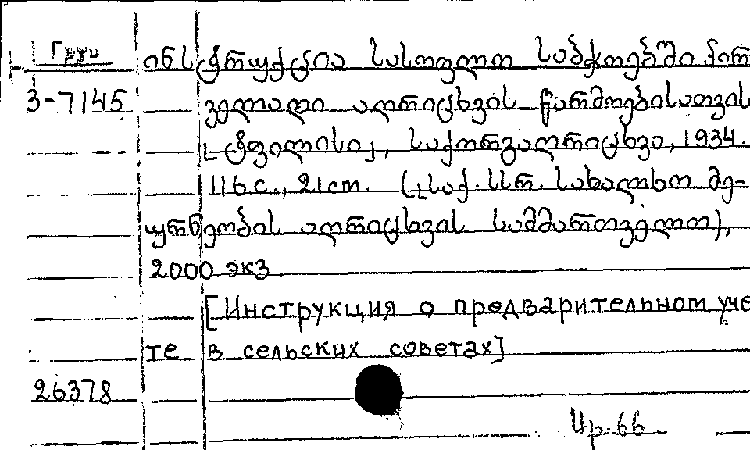 Груз
ინსტრუქცია სასოფლო საბჭოებში პირ
3-7145 ველადი აღრიცხვის წარმოებისათვის
[ტფილისი], საქონვაღრიცხვი, 1934.
116 с., 21 cm. (სსრ. სახალხო მე-
ურნეობის აღრიცხვის სამმართველო),
2000 экз
[Инструкция о предварительном уче
те в сельских советах]
26378
Ир. 66